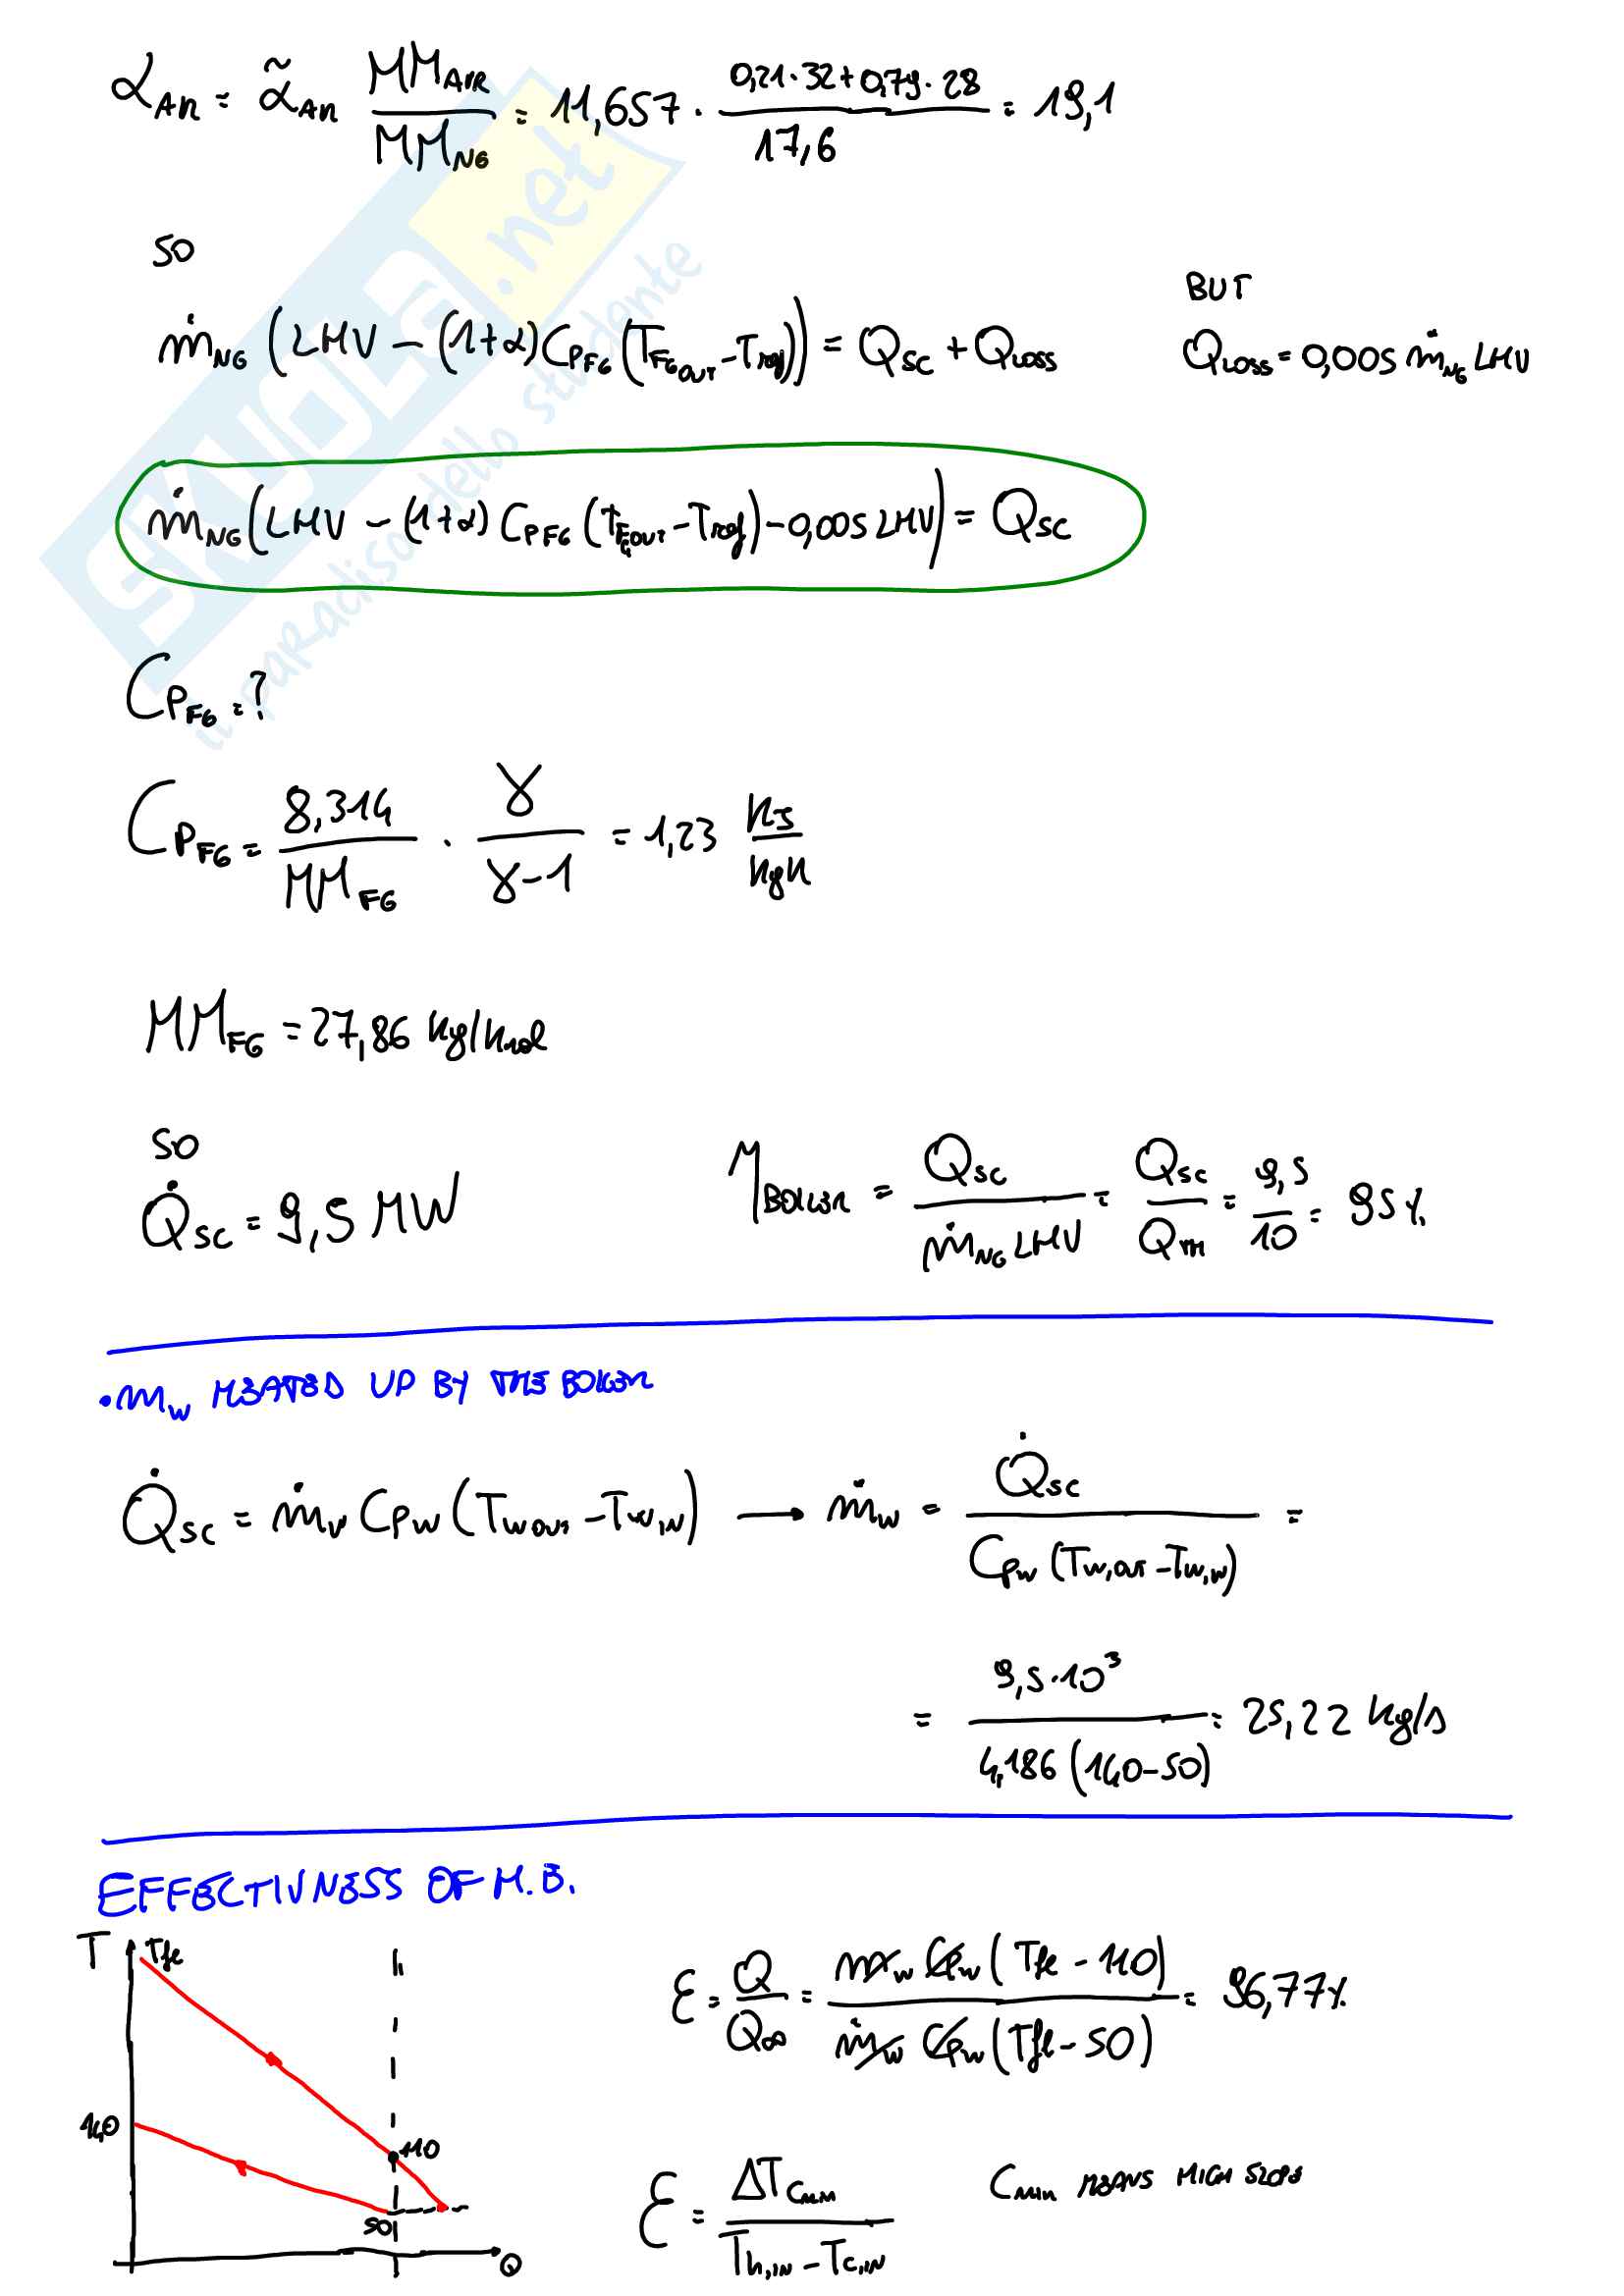 α_AR = α̃_AR MM_AIR / MM_NG = 11,657 · (0,21·32+0,79·28) / 17,6 = 19,1
SO
BUT
ṁ_NG (LHV − (1+α) C_PFG (T_FG,OUT − T_ref)) = Q_SC + Q_LOSS
Q_LOSS = 0,005 ṁ_NG LHV
ṁ_NG (LHV − (1+α) C_PFG (T_FG,OUT − T_ref) − 0,005 LHV) = Q_SC
C_PFG = ?
C_PFG = 8,314 / MM_FG · γ / (γ−1) = 1,23 kJ / kgK
MM_FG = 27,86 kg/kmol
SO
Q̇_SC = 9,5 MW
η_BOILER = Q_SC / ṁ_NG LHV = Q_SC / Q_TH = 9,5 / 10 = 95%
• ṁ_W HEATED UP BY THE BOILER
Q̇_SC = ṁ_W C_PW (T_W OUT − T_W,IN) → ṁ_W = Q̇_SC / C_PW (T_W,OUT − T_W,IN) =
= 9,5·10³ / 4,186 (140−50) = 25,22 kg/s
EFFECTIVNESS OF H.B.
T
Tfl
140
110
50
Q
ε = Q / Q∞ = ṁ_W C_PW (Tfl − 110) / ṁ_W C_PW (Tfl − 50) = 96,77%
ε = ΔT_CMIN / T_h,IN − T_C,IN
C_MIN MEANS HIGH SLOPE
SKUOLA.net
il paradiso dello studente